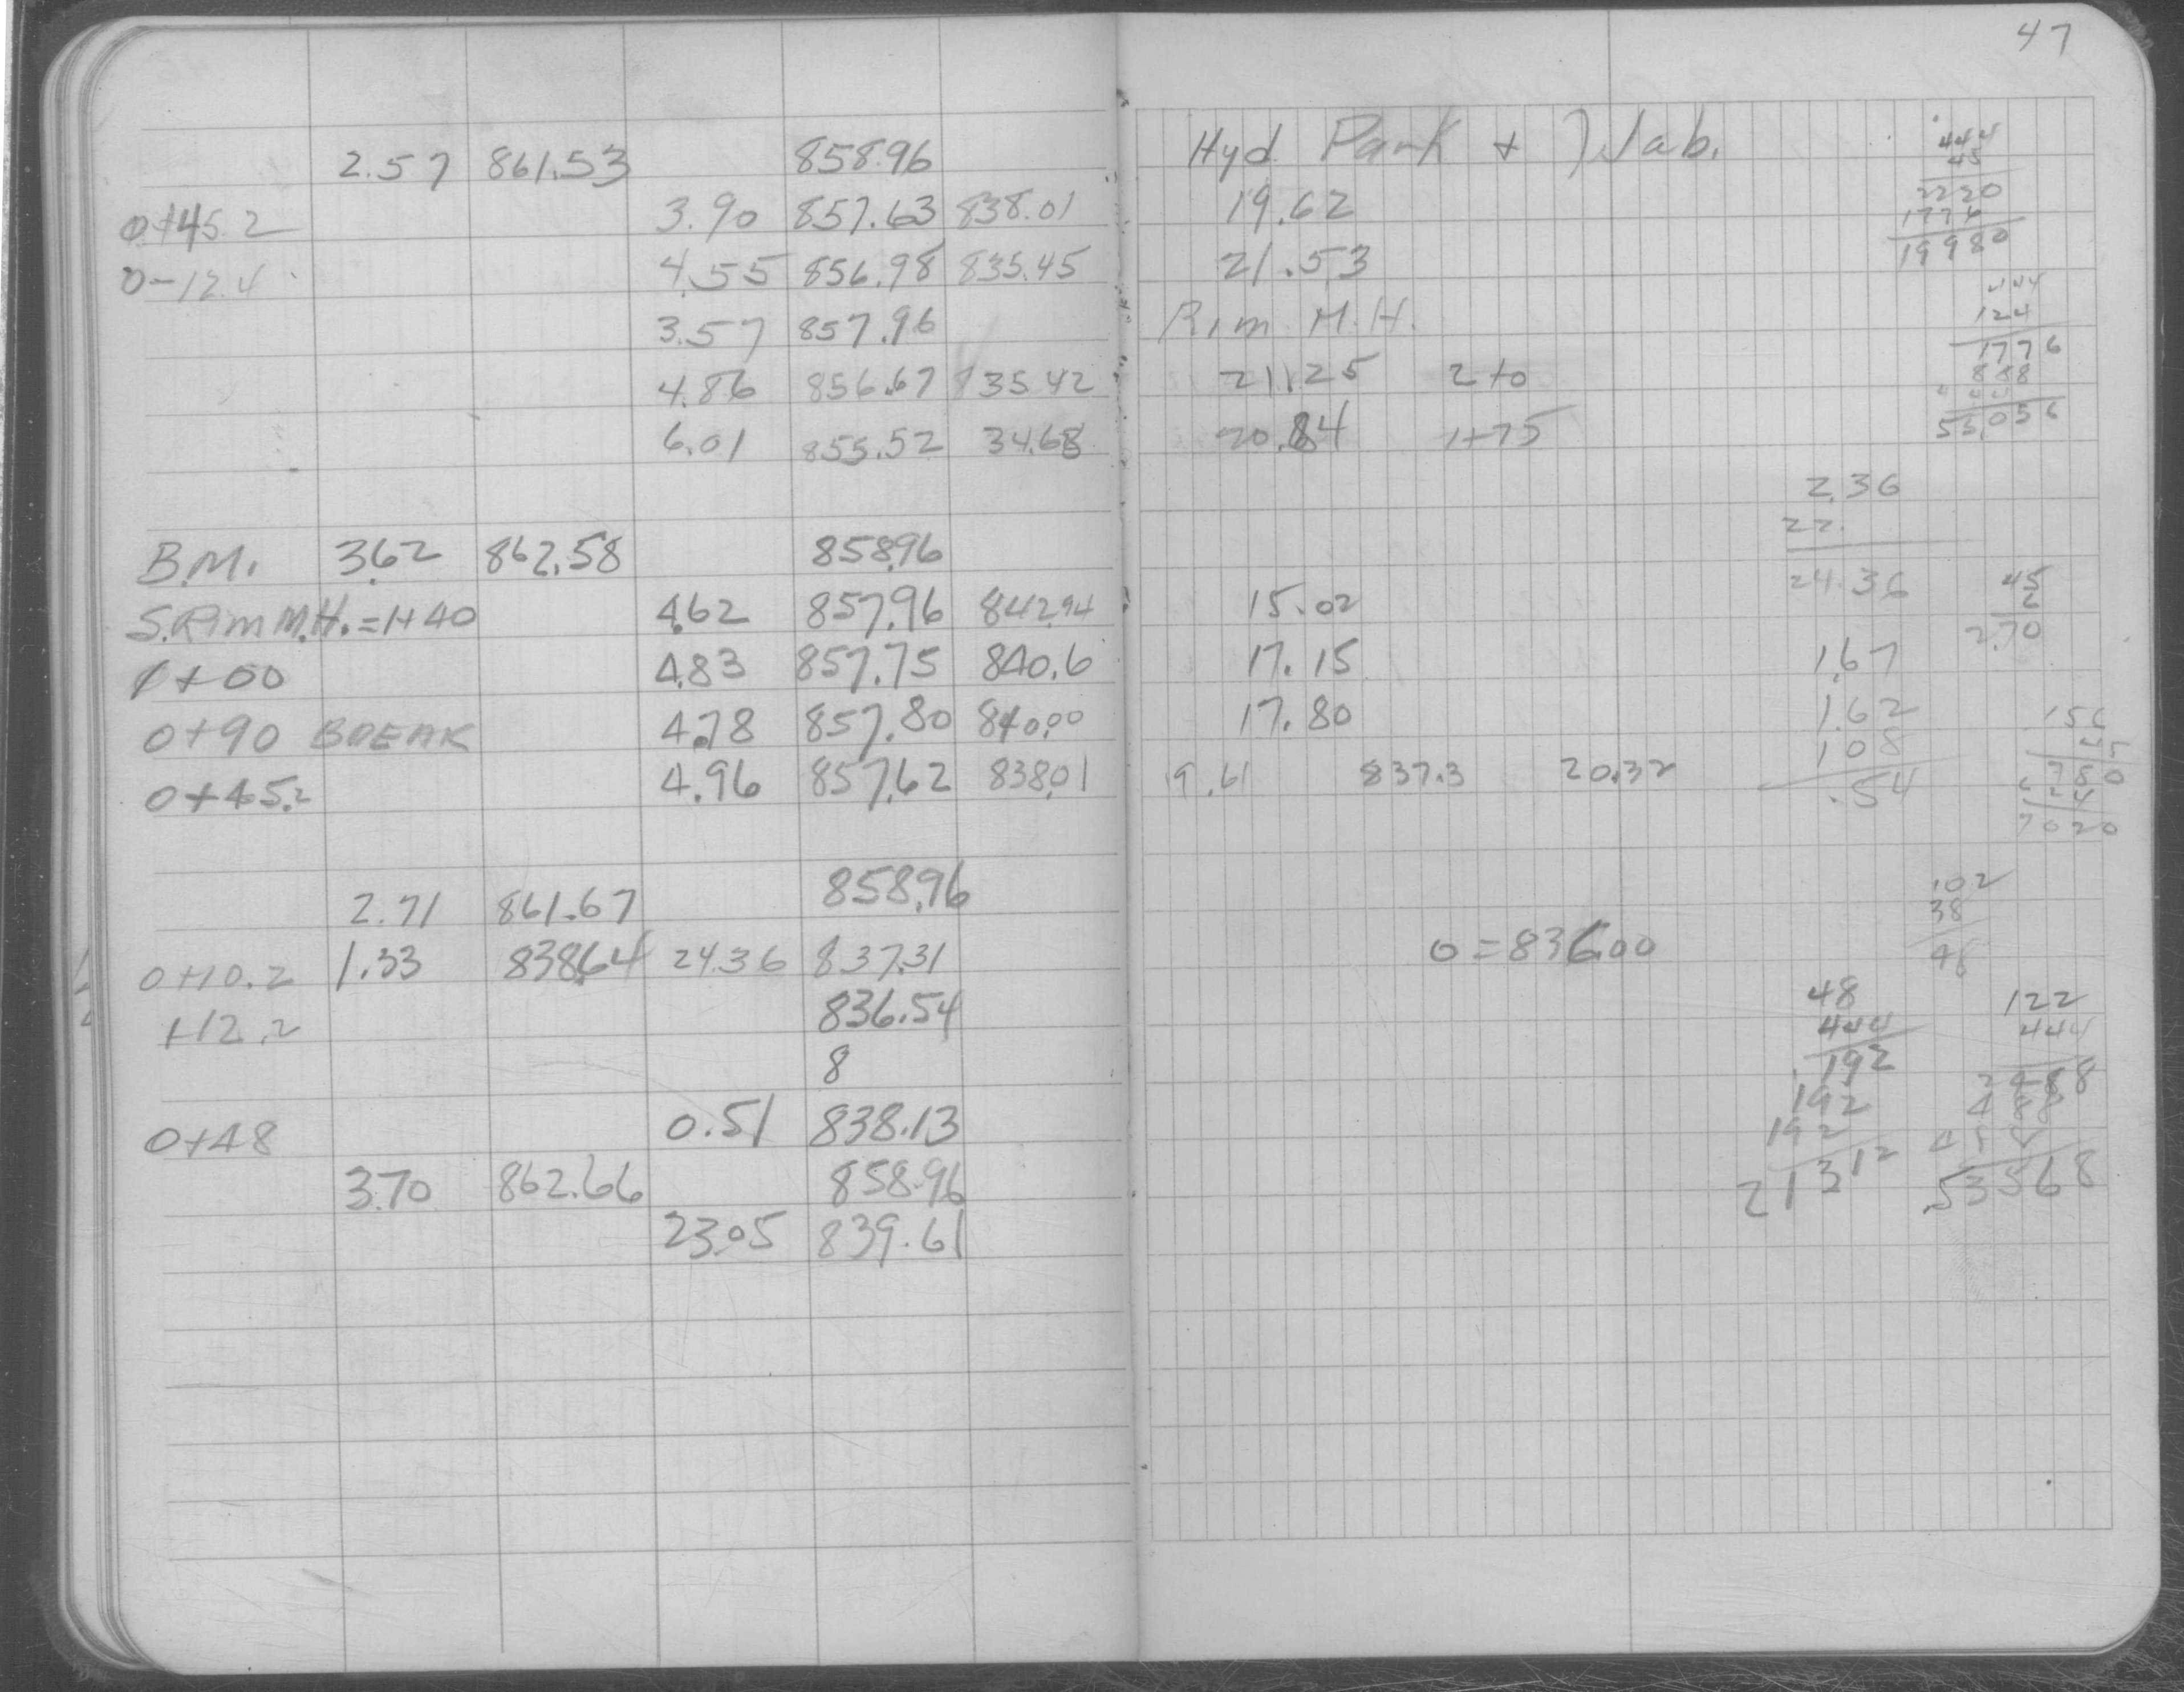 47
2.57 861.53 858.96 Hyd Park +
0+45.2 3.90 857.63 838.01 19.62
0-12.4 4.55 856.98 835.45 21.53
3.57 857.96 Rim M.H.
4.86 856.67 835.42 21.25 2+0
6.01 855.52 34.68 20.84 1+75
B.M. 3.62 862.58 858.96
S.Rim M.H. = 1+40 4.62 857.96 842.94 15.02
1+00 4.83 857.75 840.6 17.15
0+90 BREAK 4.78 857.80 840.00 17.80
0+45.2 4.96 857.62 838.01 9.61 837.3 20.32
2.71 861.67 858.96
0+10.2 1.33 838.64 24.36 837.31 0 = 836.00
+12.2 836.54
8
0+48 0.51 838.13
3.70 862.66 858.96
23.05 839.61
444
45
2220
1776
19980
444
124
1776
888
53,056
2.36
22.
24.36
45
6
2.70
1.67
1.62
108
.54
780
7020
102
38
48
444
192
192
192
21312
122
444
488
488
488
.53568